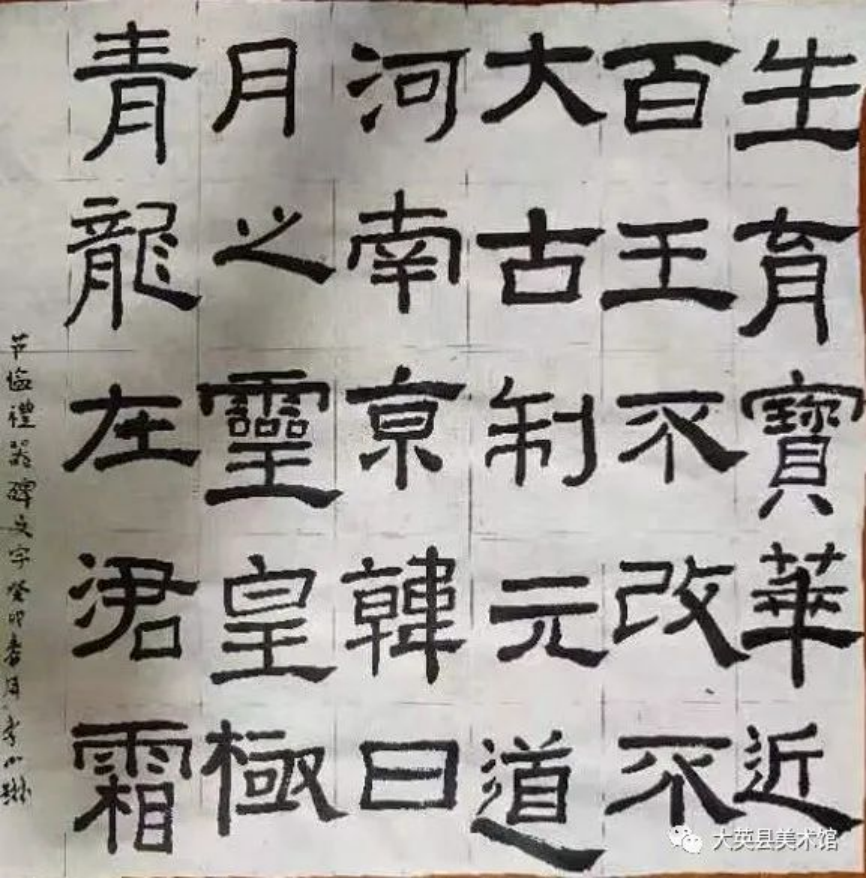 生育寶華近
百王不改不
大古制元道
河南京韓曰
月之靈皇極
青龍在涒霜
节臨禮器碑文字癸卯春月李小琳
大英县美术馆